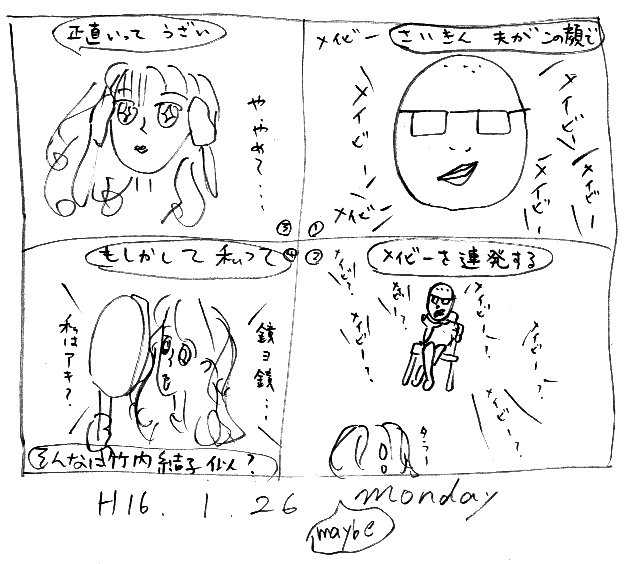 さいきん 夫がこの顔で
メイビー
メイビー
メイビー
メイビー
メイビー
メイビー
①
メイビーを連発する
メイビー?
メイビー?
メイビー?
メイビー?
メイビー?
メイビー?
タラー
②
正直いって うざい
や、やめて...
③
もしかして 私って
④
鏡ヨ鏡...
私はアキ?
そんなは竹内結子似?
H16. 1. 26 monday
maybe